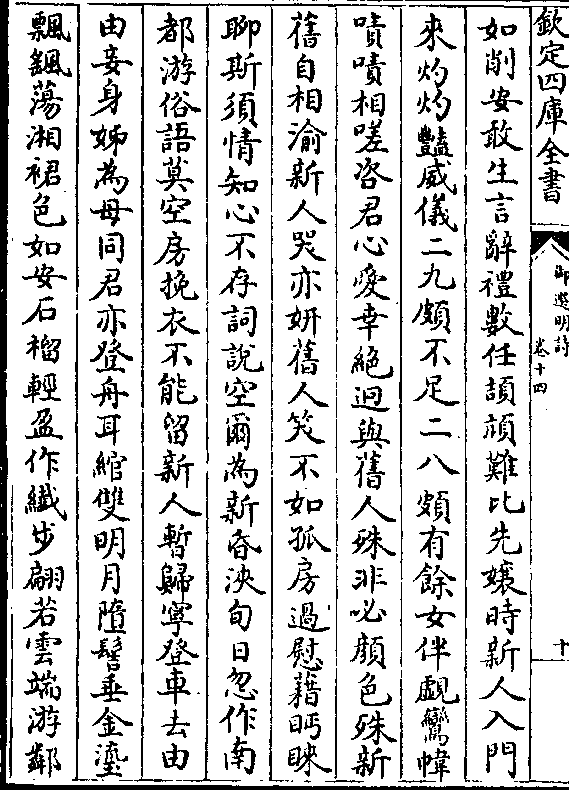 欽定四庫全書
御選明詩
卷十四
十
如削安敢生言辭禮數任頡頏難比先孃時新人入門
來灼灼豔威儀二九頗不足二八頗有餘女伴覷鸞幃
嘖嘖相嗟咨君心愛幸絕迥與舊人殊非必顔色殊新
舊自相渝新人哭亦妍舊人笑不如孤房過慰藉眄睞
聊斯須情知心不存詞說空爾為新昏浹旬日忽作南
都游俗語莫空房挽衣不能留新人暫歸寧登車去由
由妾身姊為母同君亦登舟耳綰雙明月墮髻垂金瀣
飄颻蕩湘裙色如安石榴輕盈作纖步翩若雲端游鄰